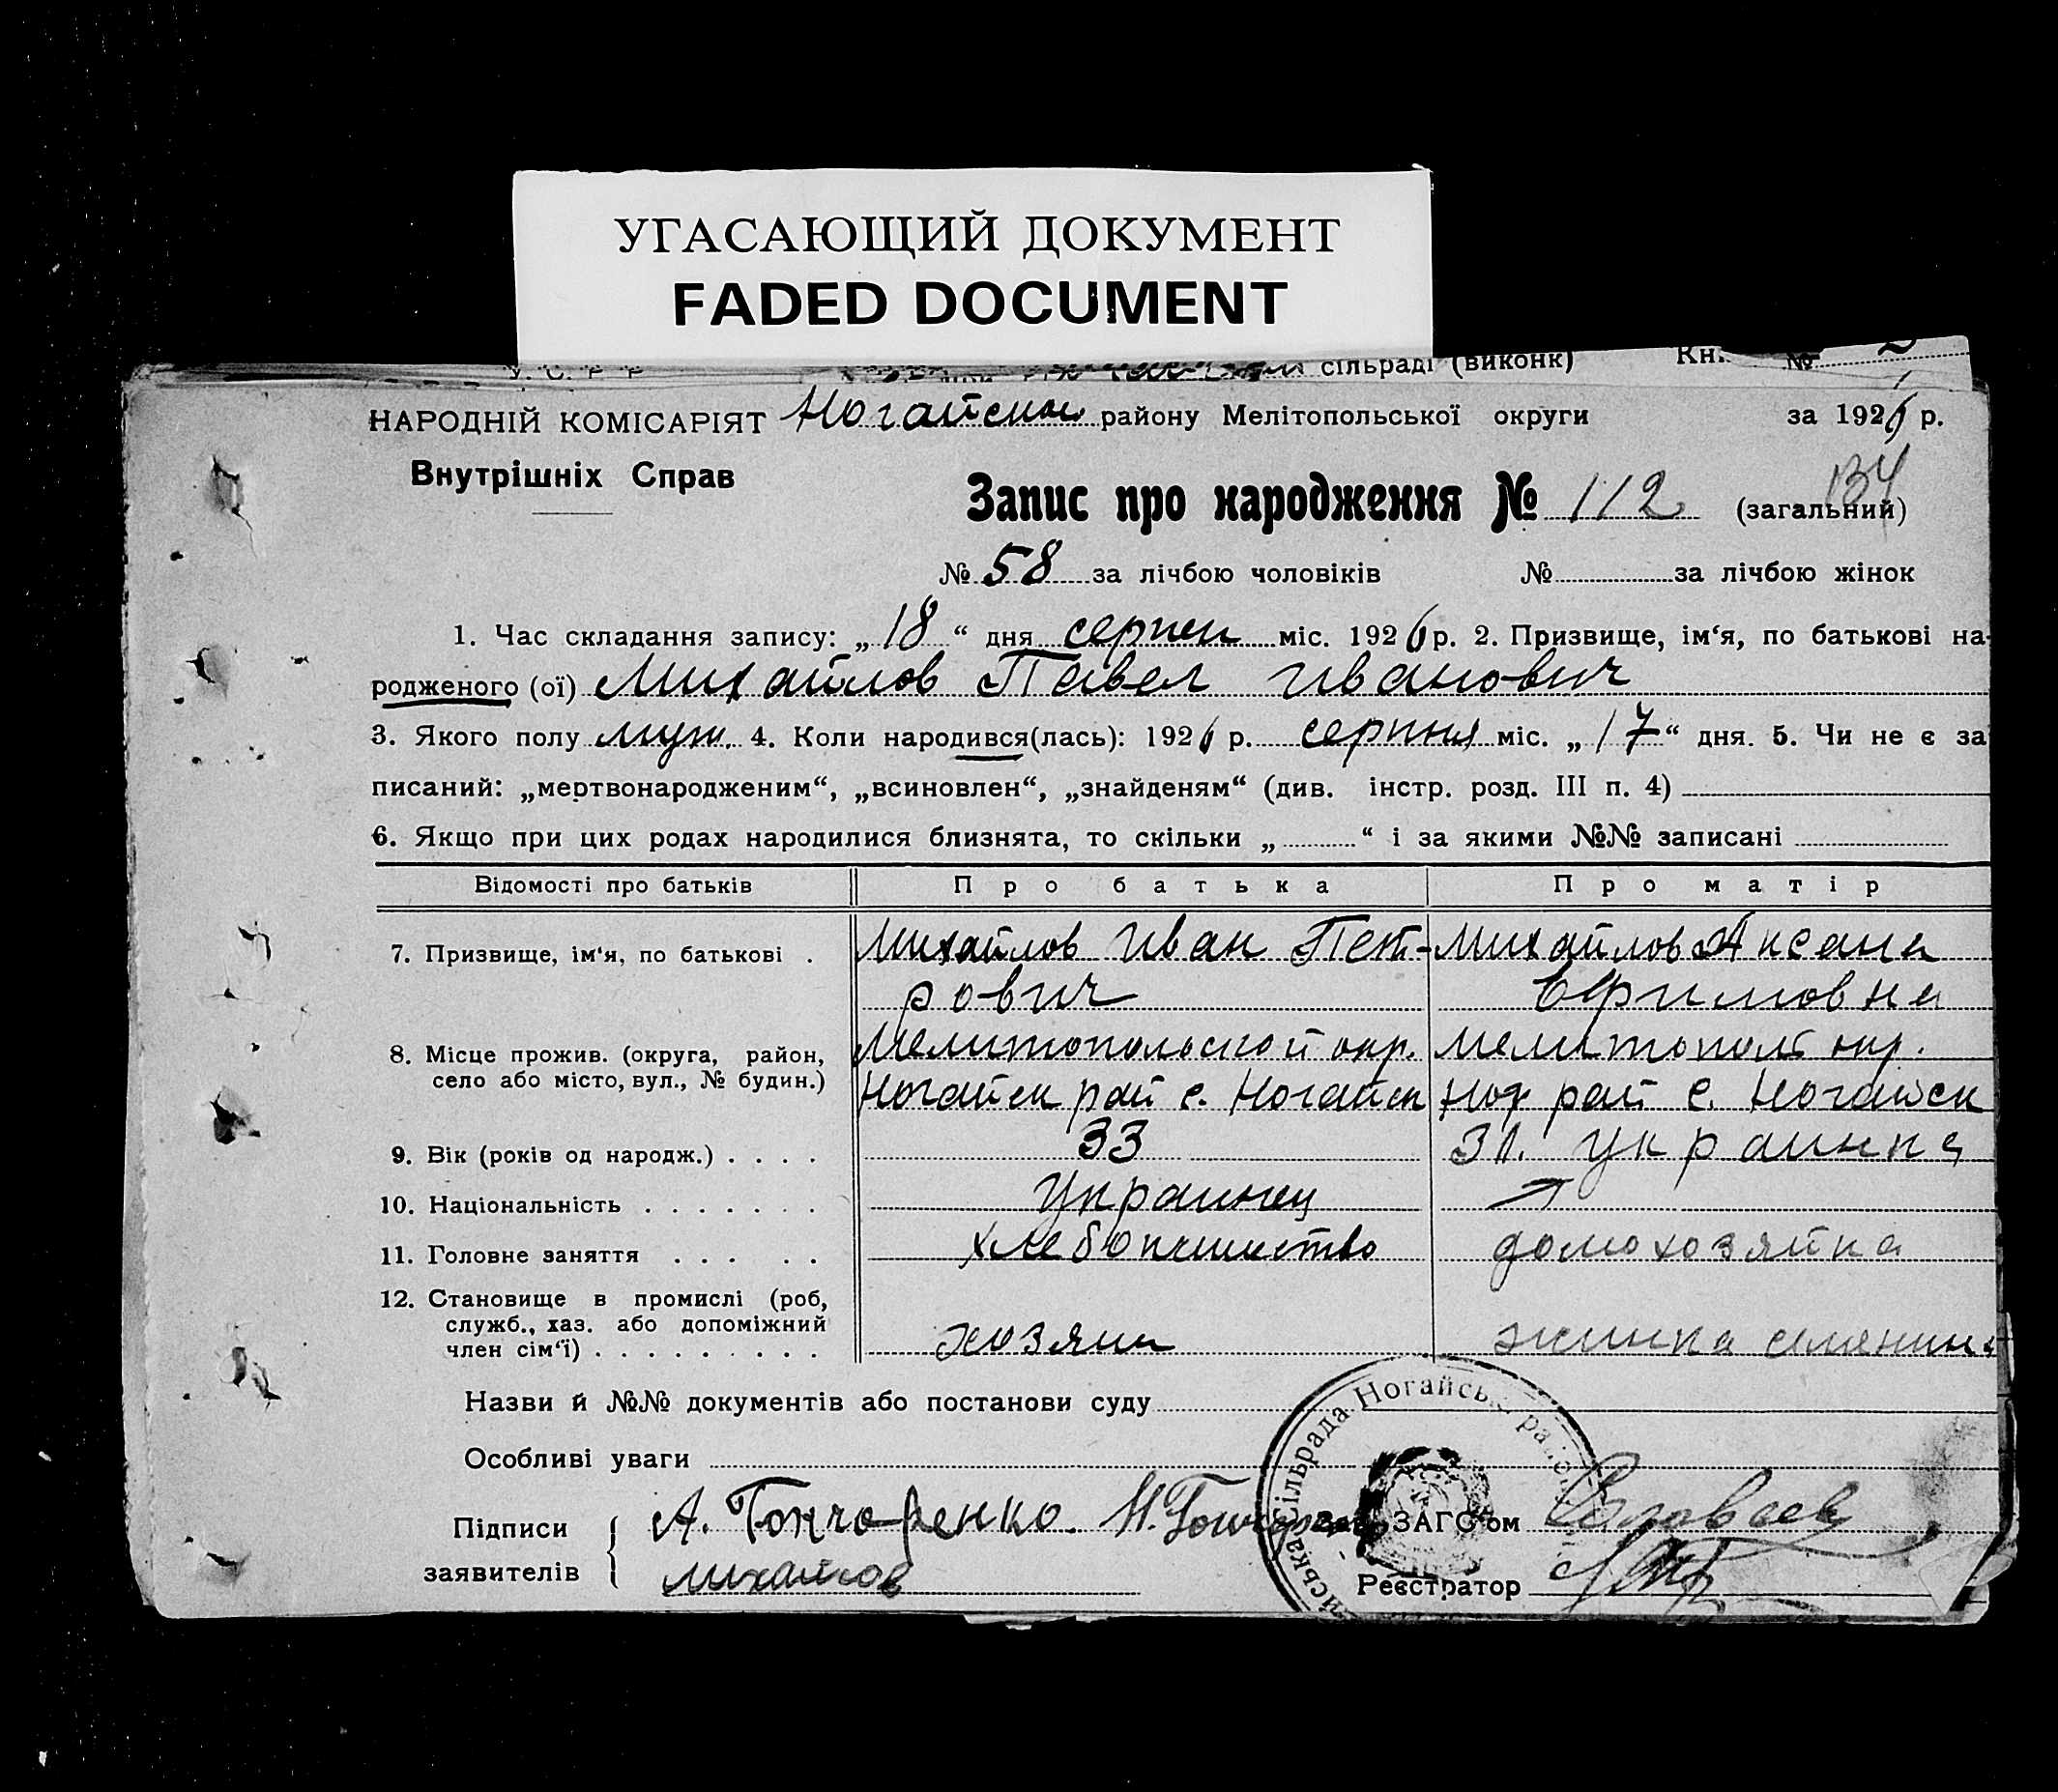 УГАСАЮЩИЙ ДОКУМЕНТ
FADED DOCUMENT
У. С. Р. Р. при сільраді (виконк) Кн. №
НАРОДНІЙ КОМІСАРІЯТ Ногайском району Мелітопольської округи за 1926 р.
Внутрішніх Справ
Запис про народження № 112 (загальний) 134
№ 58 за лічбою чоловіків № за лічбою жінок
1. Час складання запису: „18“ дня серпня міс. 1926 р. 2. Призвище, ім‘я, по батькові на-
родженого (ої) Михайлов Павел Иванович
3. Якого полу муж. 4. Коли народився(лась): 1926 р. серпня міс. „17“ дня. 5. Чи не є за
писаний: „мертвонародженим“, „всиновлен“, „знайденям“ (див. інстр. розд. III п. 4)
6. Якщо при цих родах народилися близнята, то скільки „ “ і за якими №№ записані
Відомості про батьків Про батька Про матір
7. Призвище, ім‘я, по батькові . Михайлов Иван Пет- Михайлова Аксана
рович Ефимовна
8. Місце прожив. (округа, район, Мелитопольской окр. Мелитополь окр.
село або місто, вул., № будин.) Ногайск рай с. Ногайск Ног рай с. Ногайск
9. Вік (років од народж.) . . . . 33 31. украинка
10. Національність . . . . . . . Украинец
11. Головне заняття . . . . . хлебопашество домохозяйка
12. Становище в промислі (роб,
служб., хаз. або допоміжний
член сім‘ї) . . . . . . . . . хозяин жинка
Назви й №№ документів або постанови суду
Особливі уваги
Підписи А. Гончаренко. Н. Зав. ЗАГС‘ом
заявителів Михайлов Реєстратор
Сільрада Ногайськ. район